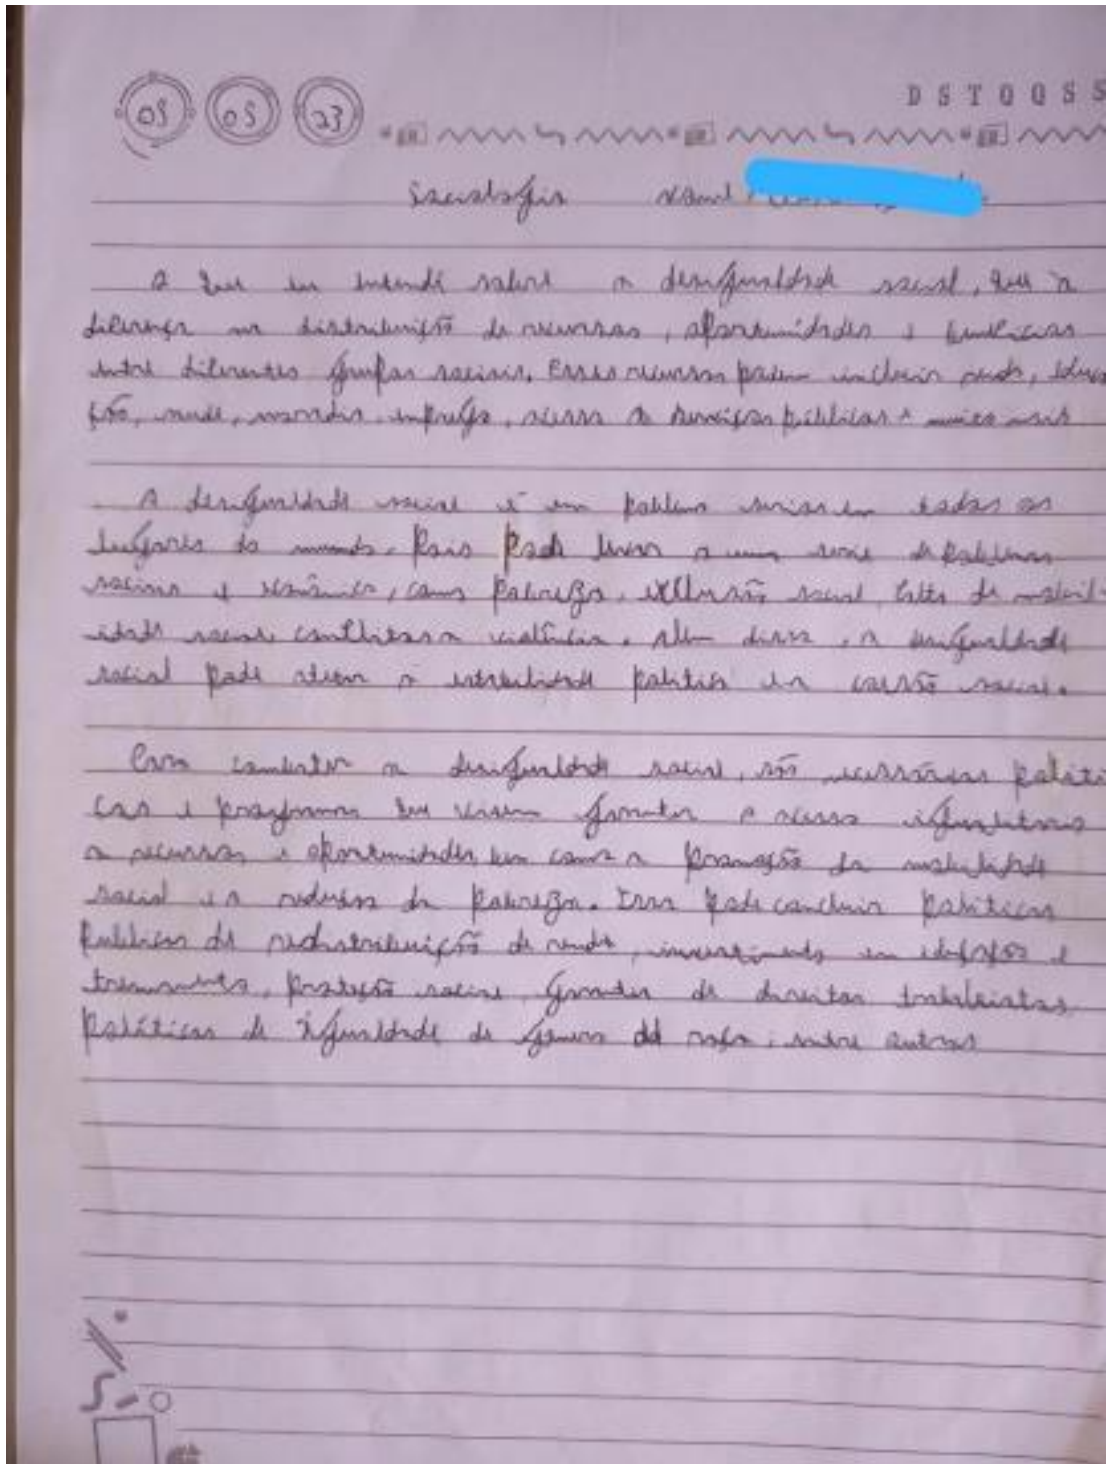 05 05 23
D S T Q Q S S
Sociologia
O que eu entendi sobre a desigualdade social, que a
diferença na distribuição de recursos, oportunidades e benefícios
entre diferentes grupos sociais. Esses recursos podem incluir renda, educa
ção, saude, moradia, emprego, acesso a serviços públicos e muito mais
A desigualdade social é um problema em todos os
lugares do mundo. Pois pode levar a uma serie de problemas
sociais e econômico, como pobreza, exclusão social, falta de mobil-
idade social, conflitos a violência. Alem disso, a desigualdade
social pode afetar a estabilidade politica e a coesão social.
Para combater a desigualdade social, são necessárias politi
cas e programas que visem garantir o acesso igualitario
a recursos e oportunidades bem como a promoção da mobilidade
social e a redução da pobreza. Isso pode concluir politicas
publicas de redistribuição de renda, investimento em educação e
treinamento, proteção social, garantia de direitos trabalhistas
Políticas de igualdade de genero de raça, entre outros